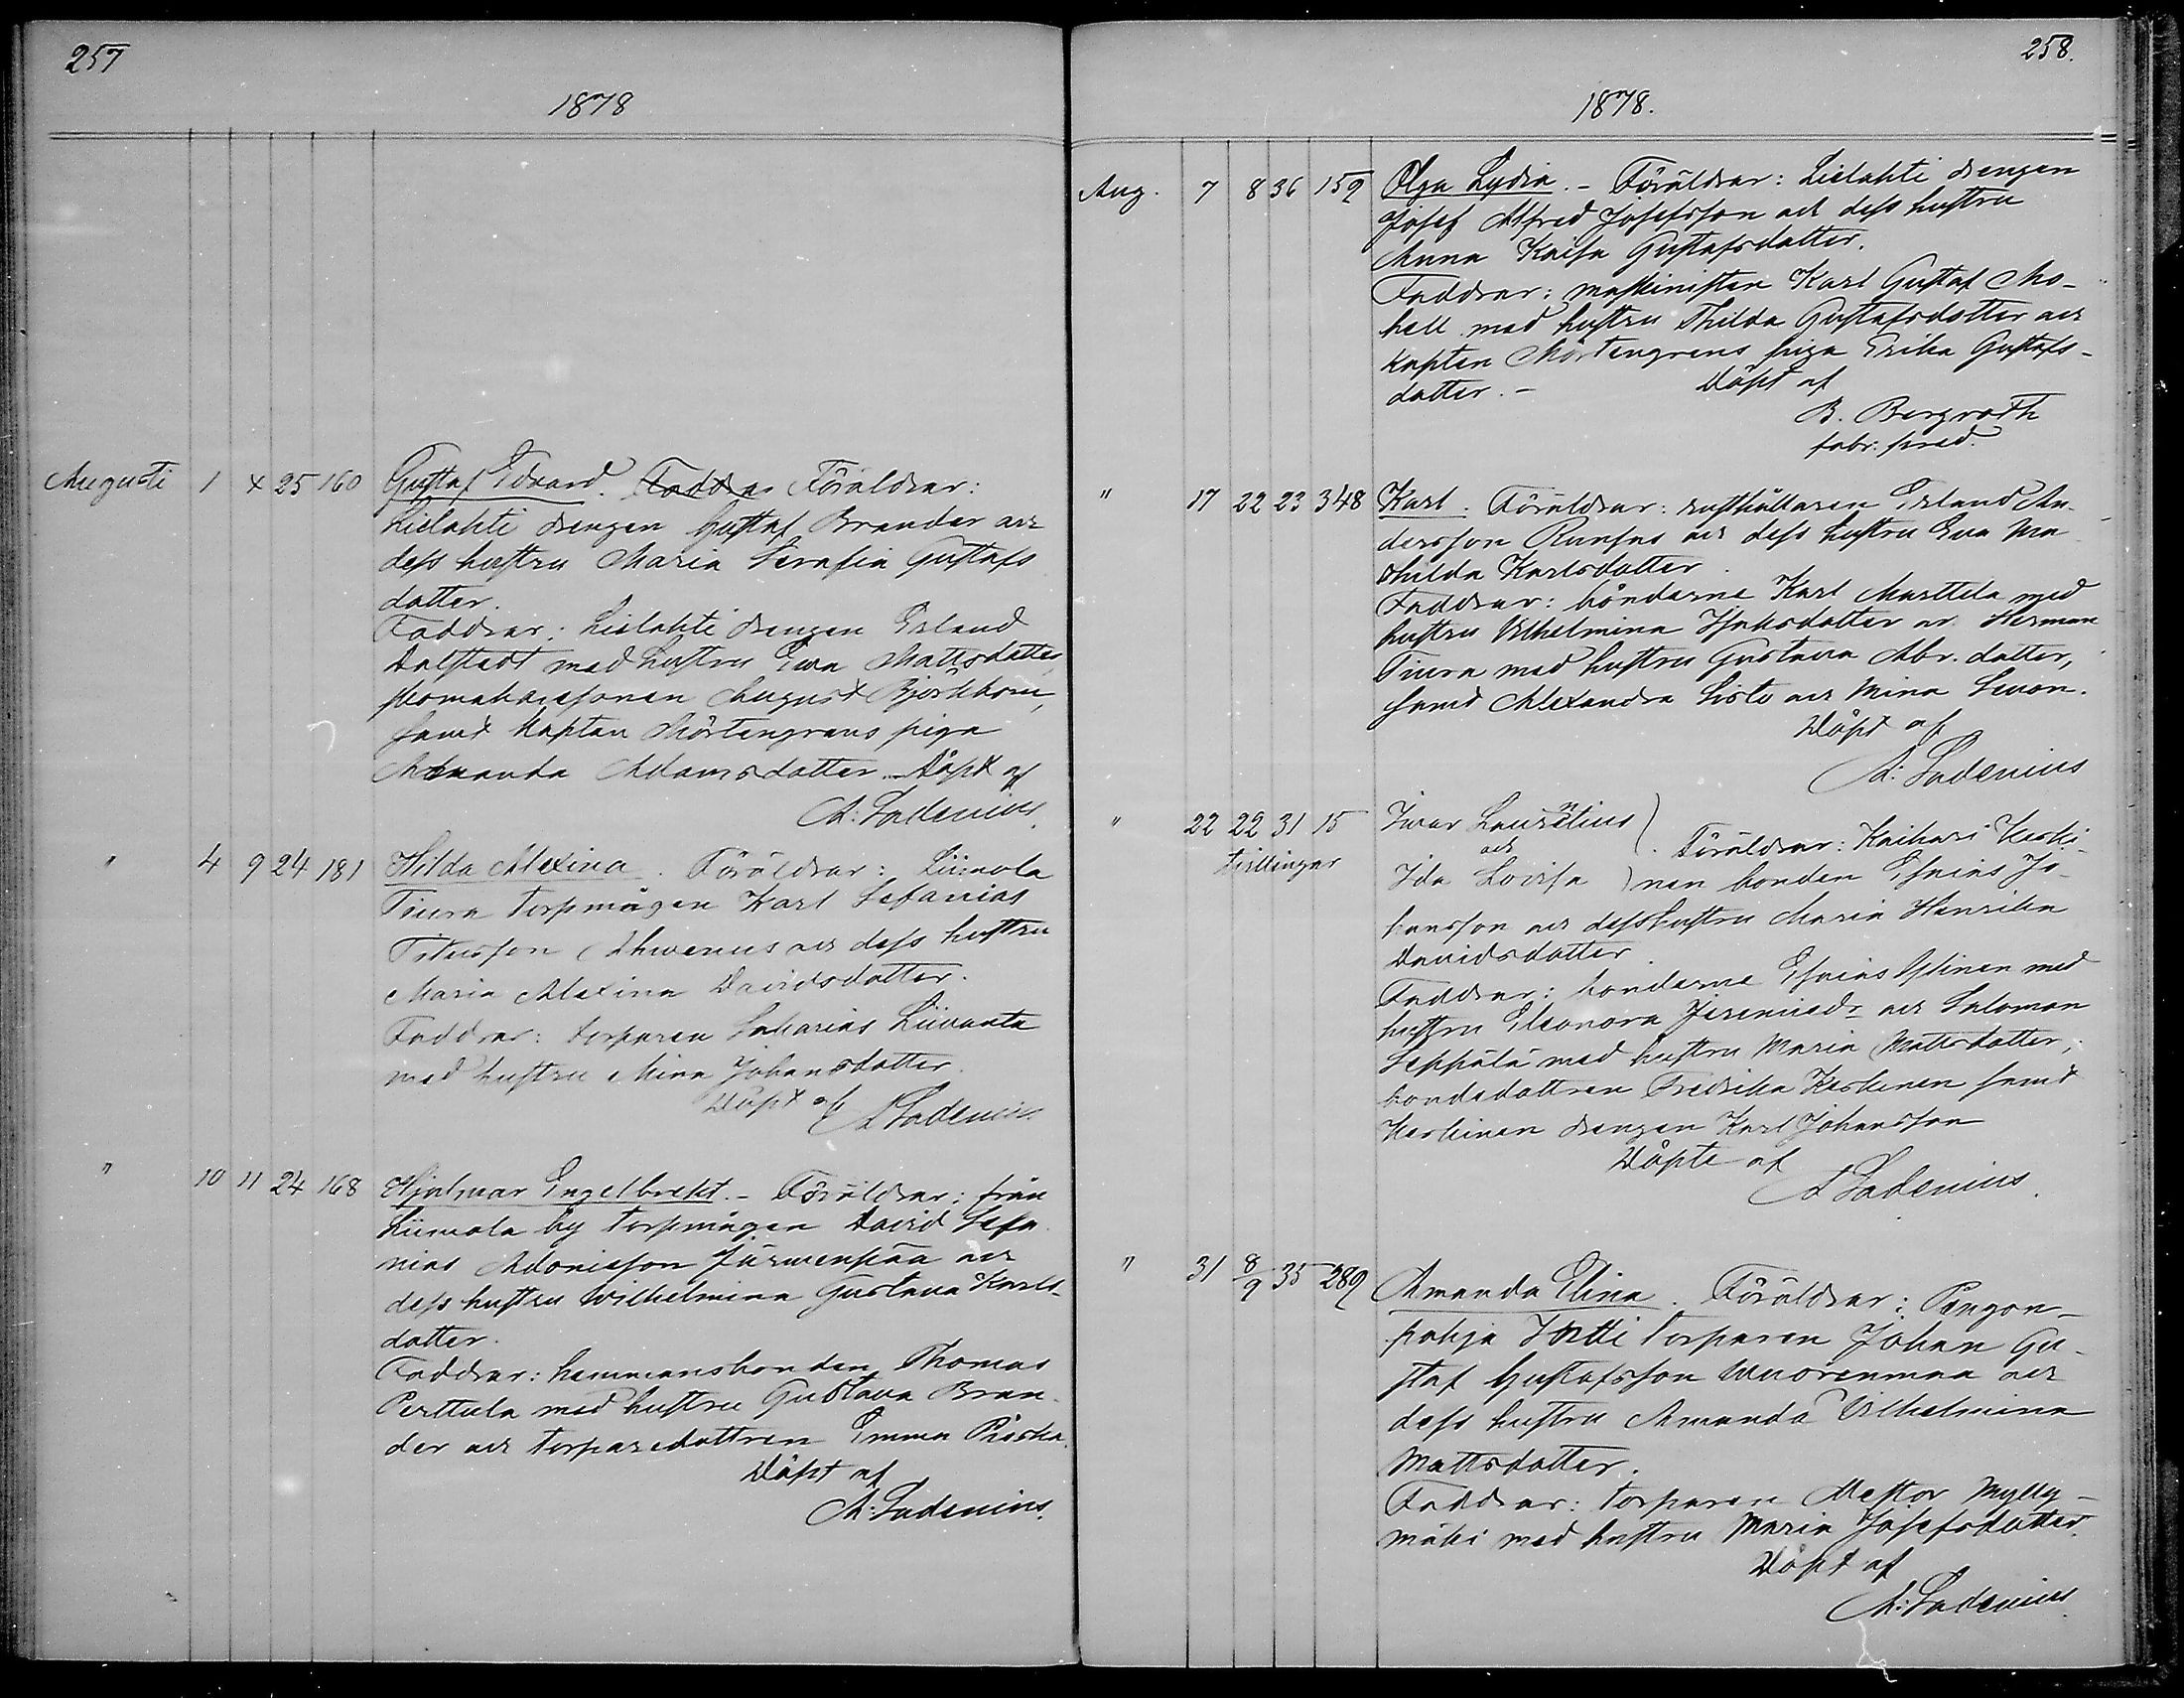 257
1878
Augusti 1 4 25 160 Gustaf Edvard. Faddra Föräldrar:
Lielahti drengen Gustaf Brander och
dess hustru Maria Serafia Gustafs
dotter.
Faddrar: Lielahti drengen Erland
Dalstedt med hustru Ewa Mattsdotter,
skomakaresonen August Björkbom,
samt Kapten Mörtengrens piga
Amanda Adamsdotter. Döpt af
A: Ladenius.
" 4 9 24 181 Hilda Alexina. Föräldrar: Liimola
Tiura torpmågen Karl Sefanias
Titusson Ahwenus och dess hustru
Maria Alexina Davidsdotter.
Faddrar: torparen Sakarias Liivanta
med hustru Mina Johansdotter.
Döpt af A Ladenius
" 10 11 24 168 Hjalmar Engelbrekt. - Föräldrar: från
Liimola by torpmågen David Sefa
nias Adonisson Järwenpää och
dess hustru Wilhelmina Gustava Karls-
dotter.
Faddrar: hemmansbonden Thomas
Perttula med hustru Gustava Bran-
der och torparedottren Emma
Döpt af
A: Ladenius.
258.
1878.
Aug. 7 8 36 159 Olga Lydia. - Föräldrar: Lielahti drengen
Josef Alfred Josefsson och dess hustru
Anna Kaisa Gustafsdotter.
Faddrar: maskinisten Karl Gustaf Mo-
hell med hustru Thilda Gustafsdotter och
Kapten Mörtengrens piga Erika Gustafs-
dotter. - Döpt af
B. Bergroth
fabr: pred.
" 17 22 23 348 Karl. Föräldrar: rusthållaren Erland An-
dersson Runsas och dess hustru Eva Ma
thilda Karlsdotter.
Faddrar: bönderne Karl Marttila med
hustru Vilhelmina Isaksdotter och Herman
Tiura med hustru Gustava Abr. dotter,
samt Alexandra Sisto och Mina Simon.
Döpt af
A: Ladenius
" 22 22 31 15 Ivar Laurentius
och ). Föräldrar: Kaihari Keski-
tvillingar Ida Lovisa ) nen bonden Esaias Jo-
hansson och dess hustru Maria Henrika
Davidsdotter.
Faddrar: bönderne Esaias Ylinen med
hustru Eleonora Jeremiasdr och Salomon
Seppälä med hustru Maria Mattsdotter,
bondedottren Fredrika Keskinen samt
Keskinen drengen Karl Johansson
Döpte af
A Ladenius.
" 31 8/9 35 289 Amanda Elina. Föräldrar: Pengon-
pohja Yrtti torparen Johan Gu-
staf Gustafsson Wuorenmaa och
dess hustru Amanda Vilhelmina
Mattsdotter.
Faddrar: torparen Nestor Mylly-
mäki med hustru Maria Josefsdotter.
Döpt af
A: Ladenius